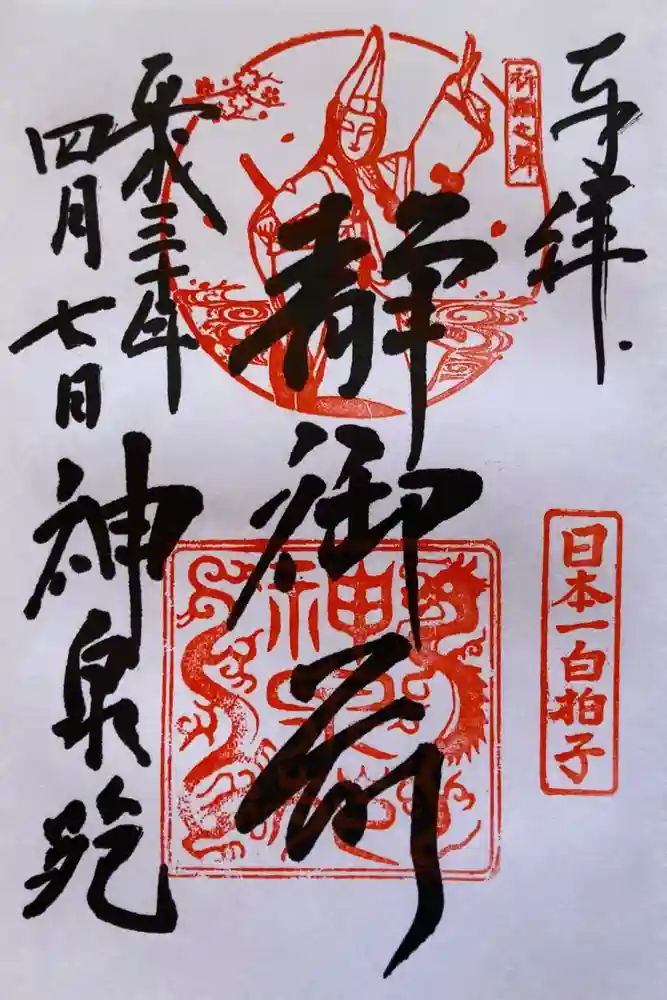 奉拝
日本一白拍子
静御前
神泉苑
平成三十年
四月七日
神泉苑